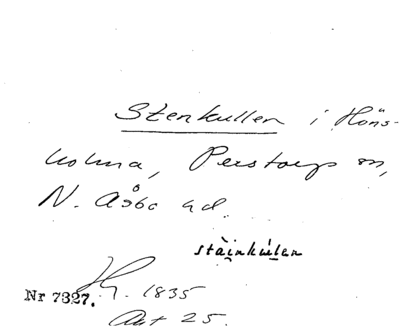 Stenkullen i Höns-
holma, Perstorps sn,
N. Åsbo hd.
stäi̯nkúlen
Nr 7327. Hy. 1835
Akt 25.